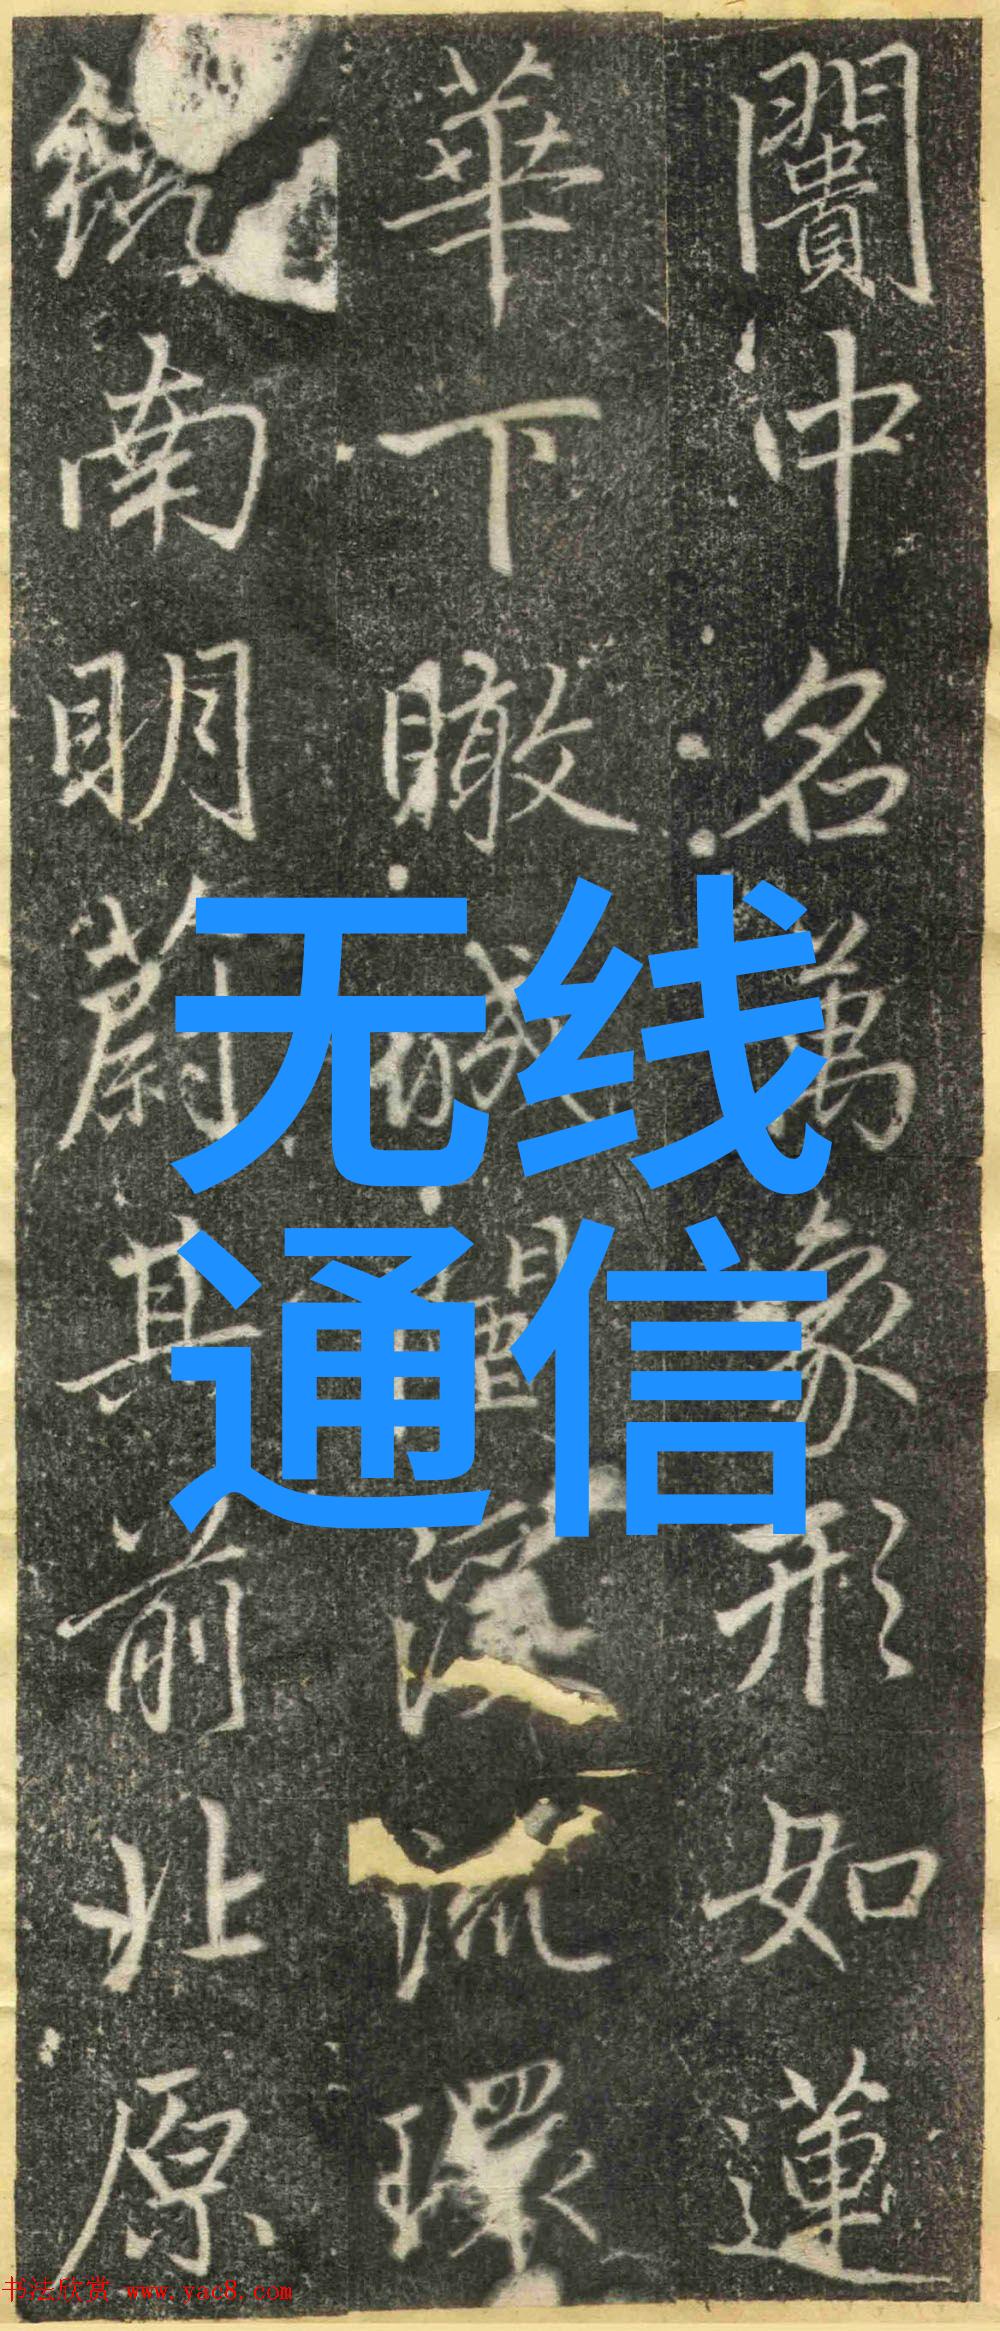 闠冲名萬象形如蓮
華下瞰環
南明蔚其前北原
无线
通信
书法欣赏 www.yac8.com